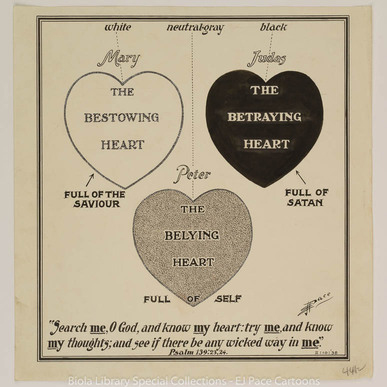 white neutral-gray black
Mary
Judas
THE
BESTOWING
HEART
THE
BETRAYING
HEART
FULL OF THE
SAVIOUR
FULL OF
SATAN
Peter
THE
BELYING
HEART
FULL OF SELF
EJPace
"Search me, O God, and know my heart: try me, and know
my thoughts; and see if there be any wicked way in me."
Psalm 139:23,24.
Biola Library Special Collections - EJ Pace Cartoons